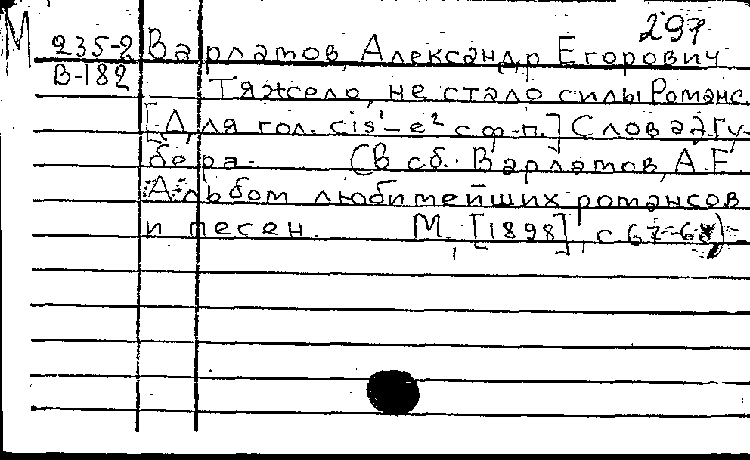 М 297
235-2 Варламов, Александр Егорович
В-182 Тяжело, не стало силы Романс
[Для гол. cis¹-e² с ф-п.] Слова Гу-
бера. (В сб. Варламов, А.Е.
Альбом любимейших романсов
и песен. М., [1898], с 67-68)